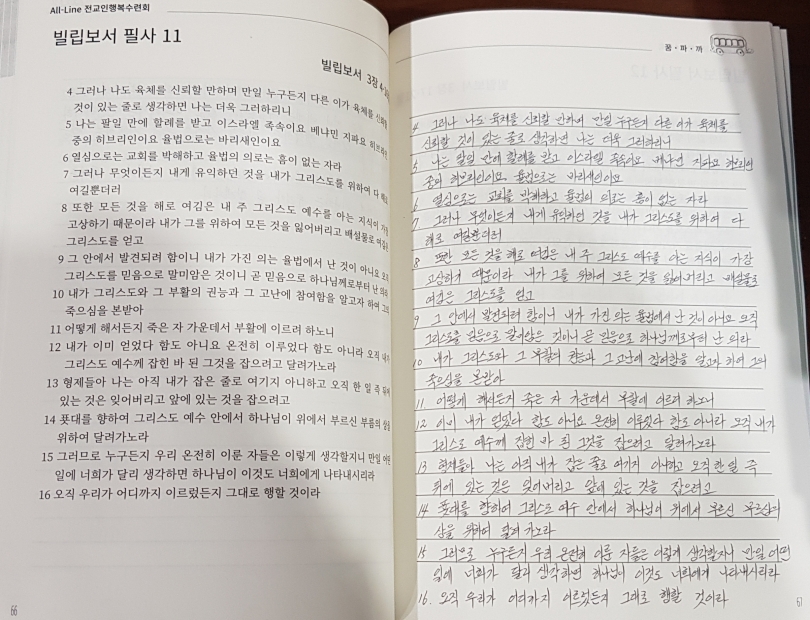 All-Line 전교인행복수련회
빌립보서 필사 11
빌립보서 3장 4-
4 그러나 나도 육체를 신뢰할 만하며 만일 누구든지 다른 이가 육체를 신뢰할
것이 있는 줄로 생각하면 나는 더욱 그러하리니
5 나는 팔일 만에 할례를 받고 이스라엘 족속이요 베냐민 지파요 히브리인
중의 히브리인이요 율법으로는 바리새인이요
6 열심으로는 교회를 박해하고 율법의 의로는 흠이 없는 자라
7 그러나 무엇이든지 내게 유익하던 것을 내가 그리스도를 위하여 다 해로
여길뿐더러
8 또한 모든 것을 해로 여김은 내 주 그리스도 예수를 아는 지식이 가장
고상하기 때문이라 내가 그를 위하여 모든 것을 잃어버리고 배설물로 여김은
그리스도를 얻고
9 그 안에서 발견되려 함이니 내가 가진 의는 율법에서 난 것이 아니요 오직
그리스도를 믿음으로 말미암은 것이니 곧 믿음으로 하나님께로부터 난 의라
10 내가 그리스도와 그 부활의 권능과 그 고난에 참여함을 알고자 하여 그의
죽으심을 본받아
11 어떻게 해서든지 죽은 자 가운데서 부활에 이르려 하노니
12 내가 이미 얻었다 함도 아니요 온전히 이루었다 함도 아니라 오직 내가
그리스도 예수께 잡힌 바 된 그것을 잡으려고 달려가노라
13 형제들아 나는 아직 내가 잡은 줄로 여기지 아니하고 오직 한 일 즉 뒤에
있는 것은 잊어버리고 앞에 있는 것을 잡으려고
14 푯대를 향하여 그리스도 예수 안에서 하나님이 위에서 부르신 부름의 상을
위하여 달려가노라
15 그러므로 누구든지 우리 온전히 이룬 자들은 이렇게 생각할지니 만일 어떤
일에 너희가 달리 생각하면 하나님이 이것도 너희에게 나타내시리라
16 오직 우리가 어디까지 이르렀든지 그대로 행할 것이라
66
꿈·파·까
4 그러나 나도 육체를 신뢰할 만하며 만일 누구든지 다른 이가 육체를
신뢰할 것이 있는 줄로 생각하면 나는 더욱 그러하리니
5 나는 팔일 만에 할례를 받고 이스라엘 족속이요 베냐민 지파요 히브리인
중의 히브리인이요 율법으로는 바리새인이요
6 열심으로는 교회를 박해하고 율법의 의로는 흠이 없는 자라
7 그러나 무엇이든지 내게 유익하던 것을 내가 그리스도를 위하여 다
해로 여길뿐더러
8 또한 모든 것을 해로 여김은 내 주 그리스도 예수를 아는 지식이 가장
고상하기 때문이라 내가 그를 위하여 모든 것을 잃어버리고 배설물로
여김은 그리스도를 얻고
9 그 안에서 발견되려 함이니 내가 가진 의는 율법에서 난 것이 아니요 오직
그리스도를 믿음으로 말미암은 것이니 곧 믿음으로 하나님께로부터 난 의라
10 내가 그리스도와 그 부활의 권능과 그 고난에 참여함을 알고자 하여 그의
죽으심을 본받아
11 어떻게 해서든지 죽은 자 가운데서 부활에 이르려 하노니
12 이미 내가 얻었다 함도 아니요 온전히 이루었다 함도 아니라 오직 내가
그리스도 예수께 잡힌 바 된 그것을 잡으려고 달려가노라
13 형제들아 나는 아직 내가 잡은 줄로 여기지 아니하고 오직 한 일 즉
뒤에 있는 것은 잊어버리고 앞에 있는 것을 잡으려고
14 푯대를 향하여 그리스도 예수 안에서 하나님이 위에서 부르신 부르심의
상을 위하여 달려가노라
15 그러므로 누구든지 우리 온전히 이룬 자들은 이렇게 생각할지니 만일 어떤
일에 너희가 달리 생각하면 하나님이 이것도 너희에게 나타내시리라
16. 오직 우리가 어디까지 이르렀든지 그대로 행할 것이라
67